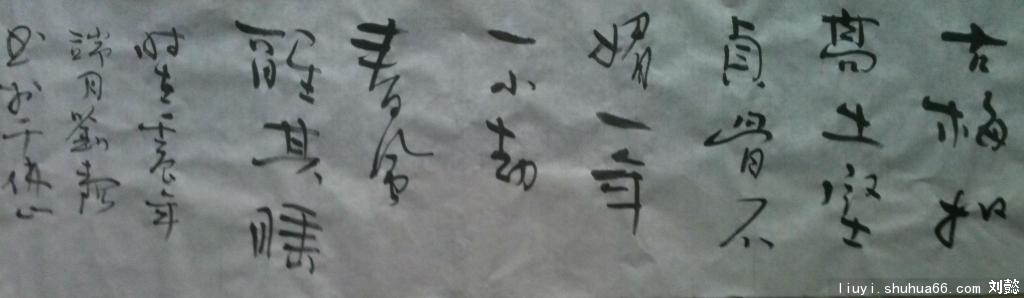 古梅如
高士堅
貞骨不
媚一年
一小劫
春風
醒其睡
时在壬辰年
端月劉懿
书於千佛山
liuyi.shuhua66.com 刘懿